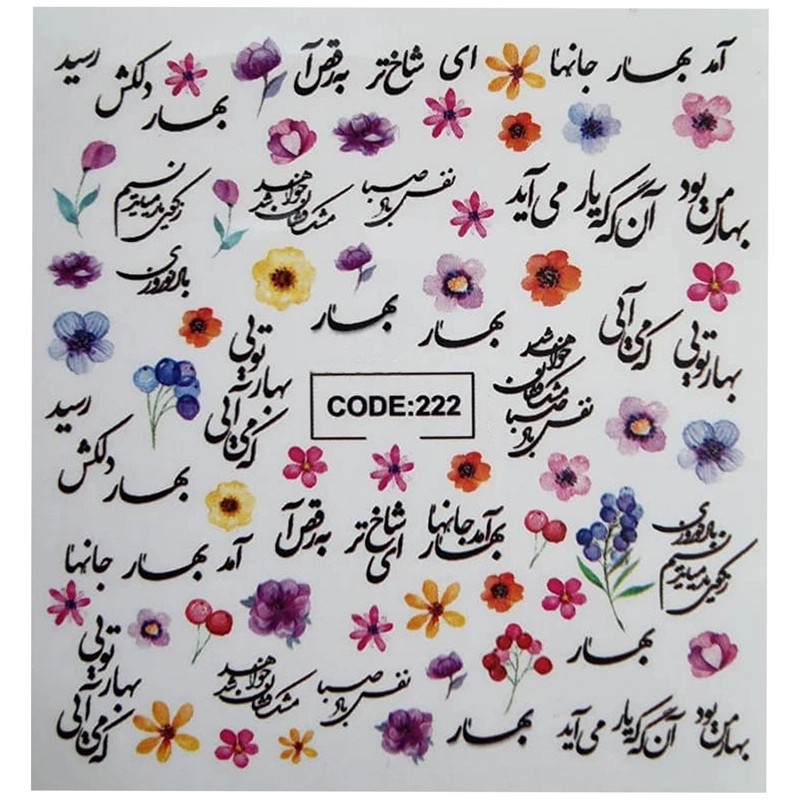 آمد بهار جانها
ای شاخ تر
به رقص آ
بهار دلکش رسید
بهار من بود
آن گه که یار
می آید
نفس باد صبا
مشک فشان خواهد شد
باد نوروزی
بهار تویی
که می آیی
بهار
بهار
بهار تویی
که می آیی
CODE:222
نفس باد صبا
مشک فشان خواهد شد
بهار دلکش رسید
آمد بهار جانها
ای شاخ تر
به رقص آ
باد نوروزی
آمد بهار جانها
بهار
بهار تویی
که می آیی
نفس باد صبا
مشک فشان خواهد شد
بهار
بهار من بود
آن گه که یار
می آید